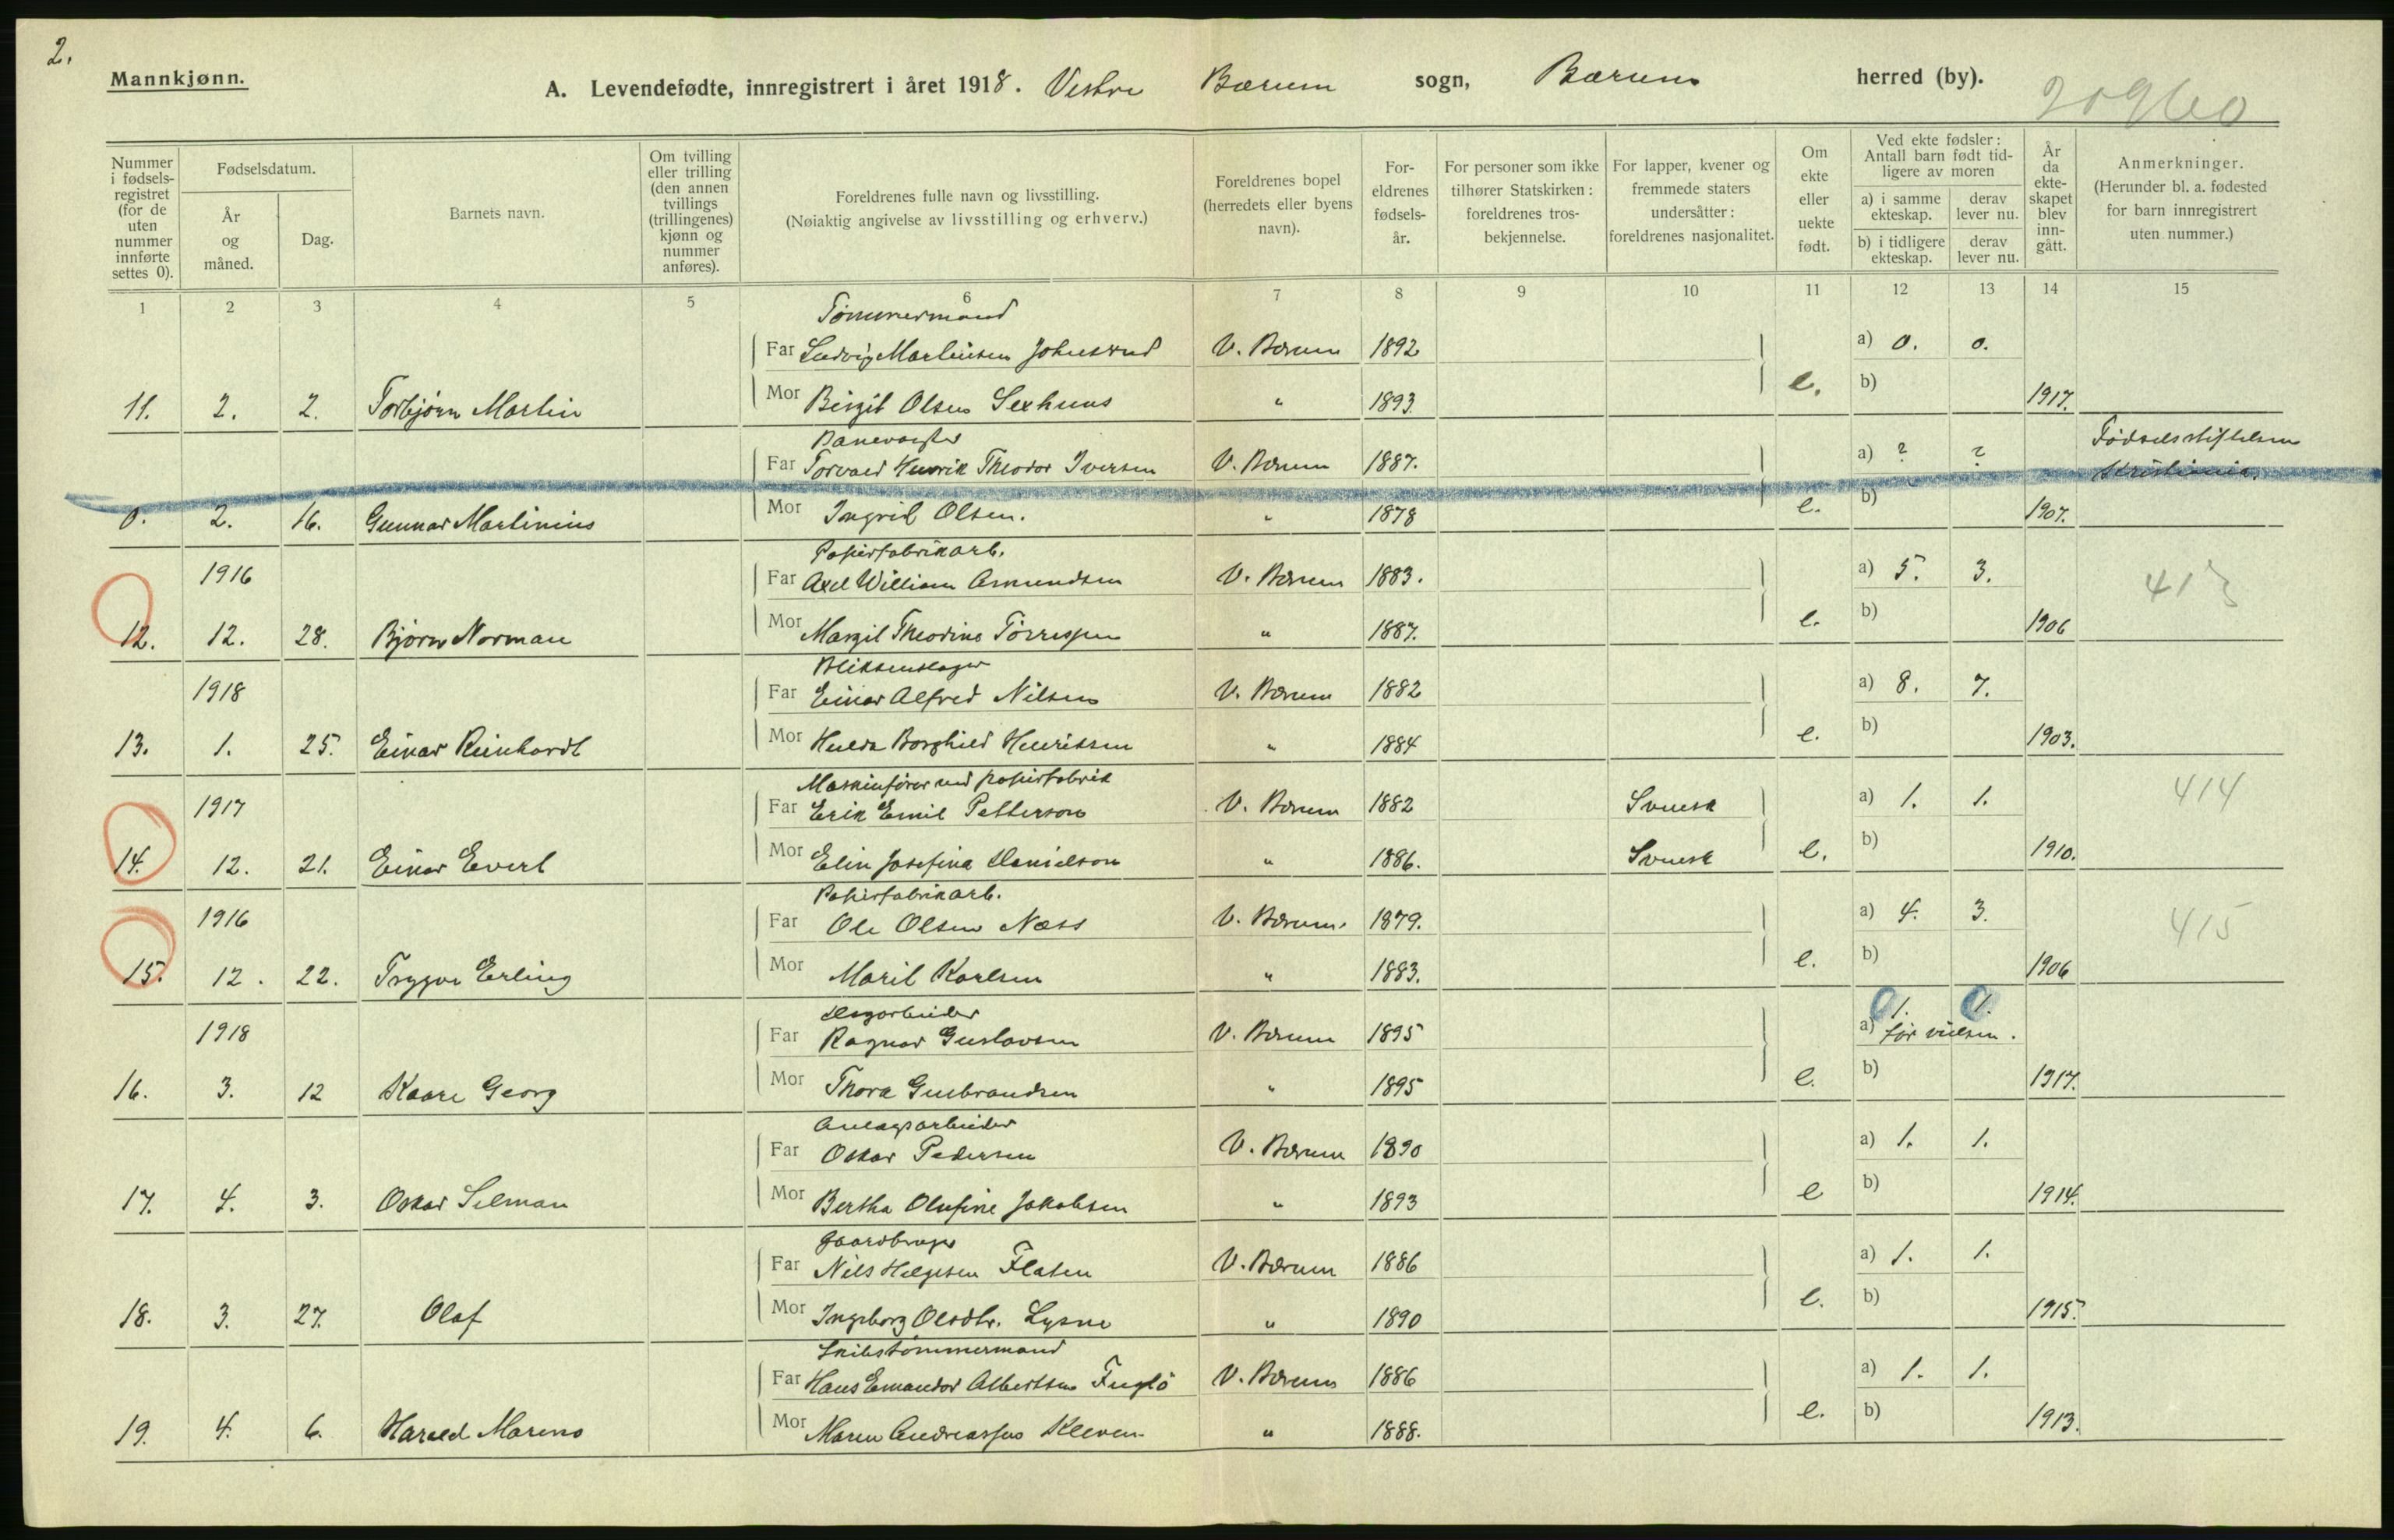 2.
Mannkjønn.
A. Levendefødte, innregistrert i året 1918. Vestre Bærum sogn, Bærum herred (by).
20960
Nummer i fødsels-registret (for de uten nummer innførte settes 0).
Fødselsdatum.
År og måned.
Dag.
Barnets navn.
Om tvilling eller trilling (den annen tvillings (trillingenes) kjønn og nummer anføres).
Foreldrenes fulle navn og livsstilling.
(Nøiaktig angivelse av livsstilling og erhverv.)
Foreldrenes bopel (herredets eller byens navn).
For-eldrenes fødsels-år.
For personer som ikke tilhører Statskirken: foreldrenes tros-bekjennelse.
For lapper, kvener og fremmede staters undersåtter: foreldrenes nasjonalitet.
Om ekte eller uekte født.
Ved ekte fødsler: Antall barn født tid-ligere av moren
a) i samme ekteskap.
derav lever nu.
b) i tidligere ekteskap.
derav lever nu.
År da ekte-skapet blev inn-gått.
Anmerkninger.
(Herunder bl. a. fødested for barn innregistrert uten nummer.)
1 2 3 4 5 6 7 8 9 10 11 12 13 14 15
Tømmermand
Far Ludvig Martinsen Johnsrud V. Bærum 1892 a) 0. 0.
11. 2. 2. Torbjørn Martin Mor Birgit Olsen Sexhuus " 1893 e. b) 1917.
Banevogter Fødselsstiftelsen
Far Torvald Henrik Theodor Iversen V. Bærum 1887. a) ? ? Kristiania.
0. 2. 16. Gunnar Martinius Mor Ingrid Olsen. " 1878 e. b) 1907.
Papirfabrikarb.
1916 Far Axel William Asmundsen V. Bærum 1883. a) 5. 3. 413
12. 12. 28. Bjørn Norman Mor Margit Theodine Tørresen " 1887. e. b) 1906
Blikkenslager
1918 Far Einar Alfred Nilsen V. Bærum 1882 a) 8. 7.
13. 1. 25. Einar Reinhardt Mor Hulda Borghild Henriksen " 1884 e. b) 1903.
Maskinfører ved papirfabrik
1917 Far Erik Emil Petterson V. Bærum 1882 Svensk a) 1. 1. 414
14. 12. 21. Einar Evert Mor Elin Josefina Danielson " 1886. Svensk e. b) 1910.
Papirfabrikarb.
1916 Far Ole Olsen Næss V. Bærum. 1879. a) 4. 3. 415
15. 12. 22. Trygve Erling Mor Marit Karlsen " 1883. e. b) 1906
Dagarbeider 0 1. 0 1.
1918 Far Ragnar Gustavsen V. Bærum 1895 a) før vielsen.
16. 3. 12 Kaare Georg Mor Thora Gulbrandsen " 1895 e. b) 1917.
Anlægsarbeider
Far Oskar Pedersen V. Bærum 1890 a) 1. 1.
17. 4. 3. Oskar Selman Mor Bertha Olufine Jakobsen " 1893 e b) 1914.
Gaardbruger
Far Nils Helgesen Flaten V. Bærum 1886 a) 1. 1.
18. 3. 27. Olaf Mor Ingeborg Olsdtr. Lysne " 1890 e. b) 1915.
Skibstømmermand
Far Hans Emandor Albertsen Fuglø V. Bærum 1886 a) 1. 1.
19. 4. 6. Harald Mareno Mor Maren Andreassen Kleven " 1888. e. b) 1913.